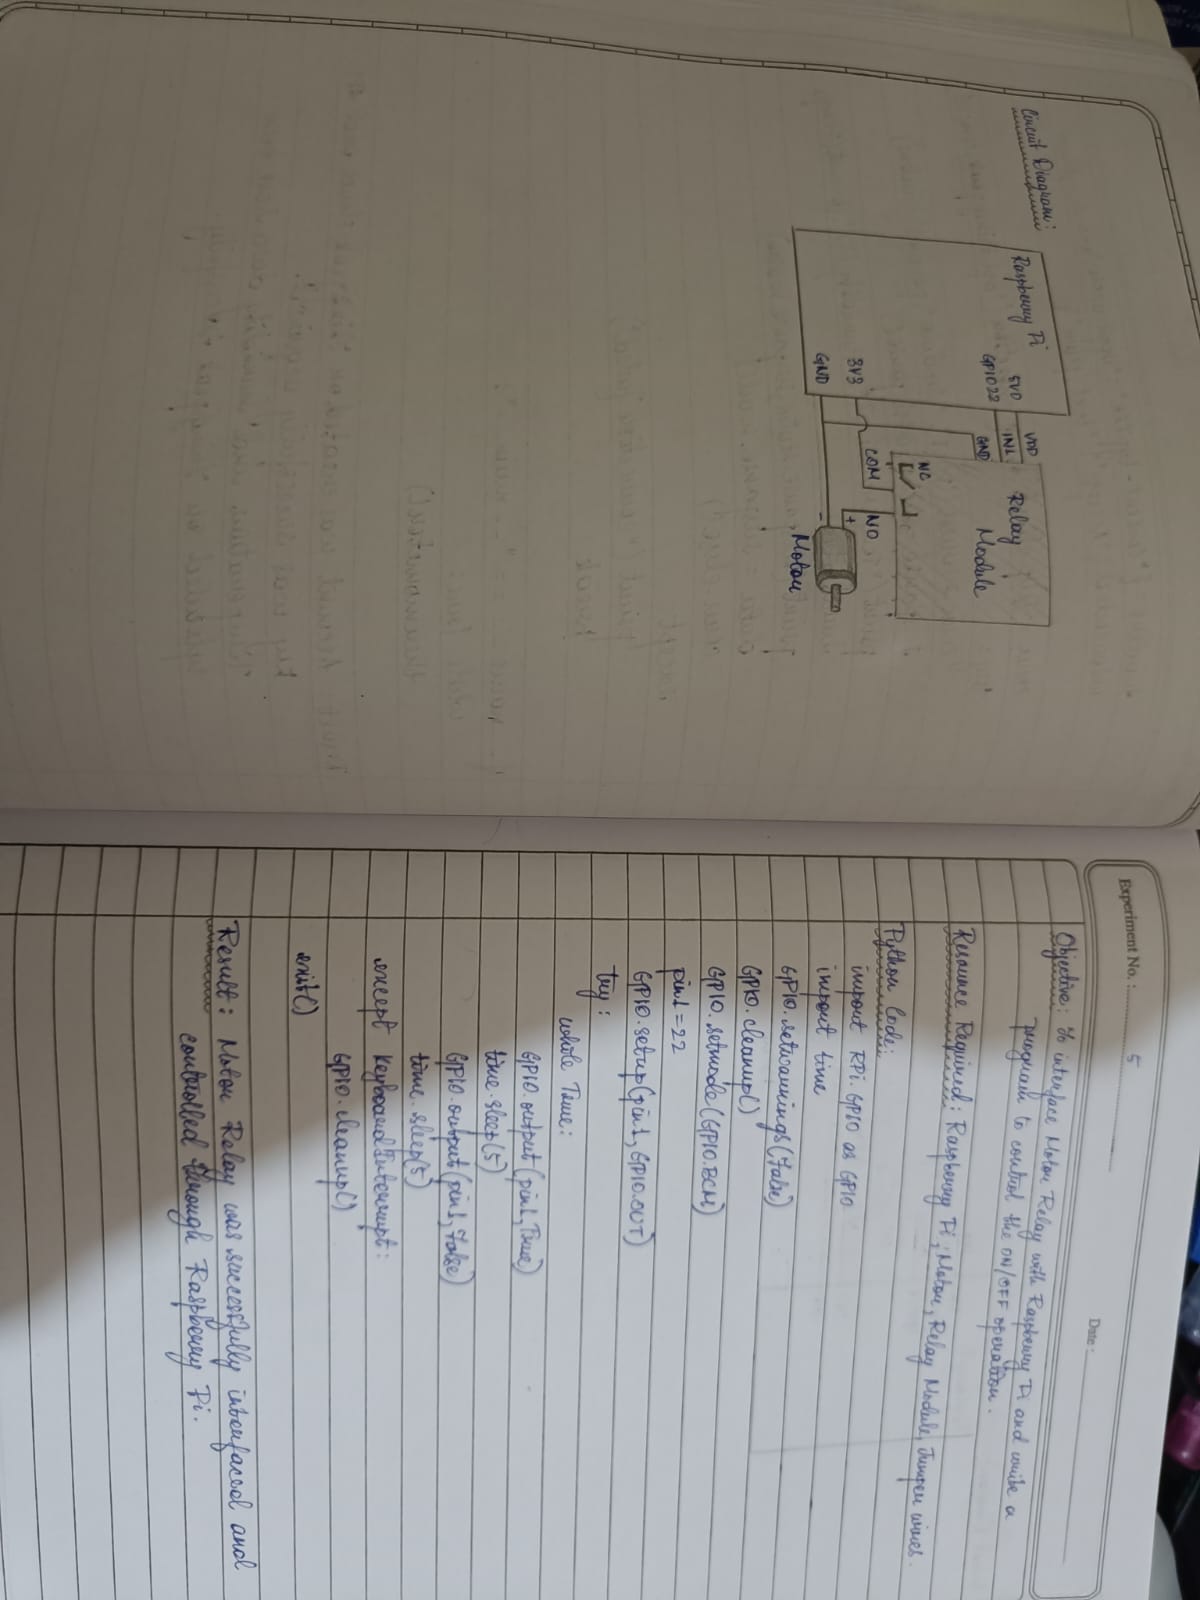 Circuit Diagram:
Raspberry Pi
5VO
GPIO22
3V3
GND
VDD
IN1
GND
Relay
Module
NC
COM
NO
+
-
Motor
Experiment No. : 5
Date :
Objective: To interface Motor Relay with Raspberry Pi and write a
program to control the ON/OFF operation.
Resource Required: Raspberry Pi, Motor, Relay Module, Jumper wires.
Python Code:
import RPi.GPIO as GPIO
import time
GPIO.setwarnings(False)
GPIO.cleanup()
GPIO.setmode(GPIO.BCM)
pin1 = 22
GPIO.setup(pin1, GPIO.OUT)
try:
while True:
GPIO.output(pin1, True)
time.sleep(5)
GPIO.output(pin1, False)
time.sleep(5)
except KeyboardInterrupt:
GPIO.cleanup()
exit()
Result: Motor Relay was successfully interfaced and
controlled through Raspberry Pi.